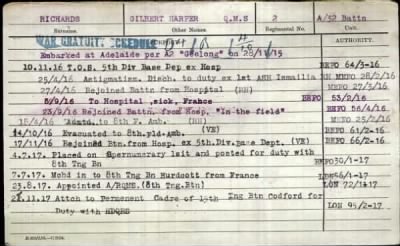 RICHARDS GILBERT HARPER Q.M.S 2 A/32 Battn
Surname. Other Names. Regimental No.
WAR GRATUITY SCHEDULE AUTHORITY.
Embarked at Adelaide per A2 "Geelong" on
10.11.16 T.O.S. 5th Div Base Dep ex Hosp BEFO 64/3-16
25/4/16 Astigmatism. Disch. to duty ex 1st AGH Ismailia MEFO 28/2-16
27/4/16 Rejoined Battn from Hospital (RH) MEFO 27/2-16
3/9/16 To Hospital ,sick, France BEFO 53/2/16
23/9/16 Rejoined Battn. from Hosp, "In the field" BEFO 56/4-16
15/4/16 Admtd. to 8th F. Amb. (RH) MEFO 25/2-16
14/10/16 Evacuated to 8th.Fld.Amb. (VE) BEFO 61/2-16
17/11/16 Rejoined Btn.from Hosp ex 5th.Div.Base Dept. (VE) BEFO 66/2-16
4.7.17. Placed on Supernumerary list and posted for duty with
8th Tng Bn BEFO 30/1-17
7.7.17. Mchd in to 8th Tng Bn Hurdcott from France LON 56/1-17
23.8.17. Appointed A/RQMS.(8th Tng.Btn) LON 72/1-17
.11.17 Attch to Permanent Cadre of 15th Tng Btn Codford for
Duty with HDQRS LON 95/2-17